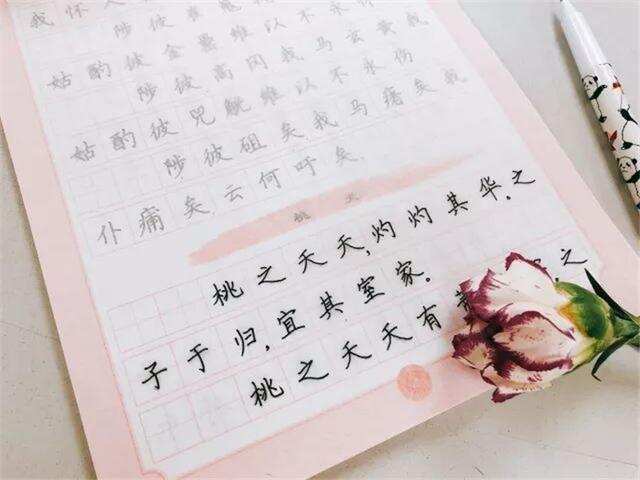 我怀人
陟彼崔嵬
姑酌彼金罍维以不永
陟彼高冈我马玄黄我
姑酌彼兕觥维以不永伤
陟彼砠矣我马瘏矣我
仆痡矣云何吁矣.
桃夭
桃之夭夭,灼灼其华。之
子于归,宜其室家。
桃之夭夭有 之